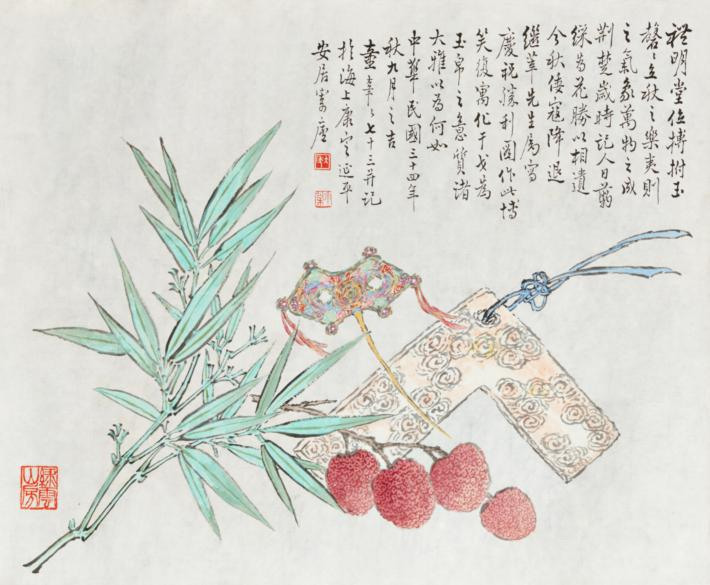 禮明堂位搏拊玉
磬立秋之樂夷則
之氣象萬物之成
荆楚歲時記人日翦
綵為花勝以相遺
今秋倭寇降退
繼莘先生属寫
慶祝勝利圖作此博
笑復寓化干戈為
玉帛之意質諸
大雅以為何如
中華民國三十四年
秋九月之吉
童辛之七十三并記
於海上康定延平
安居